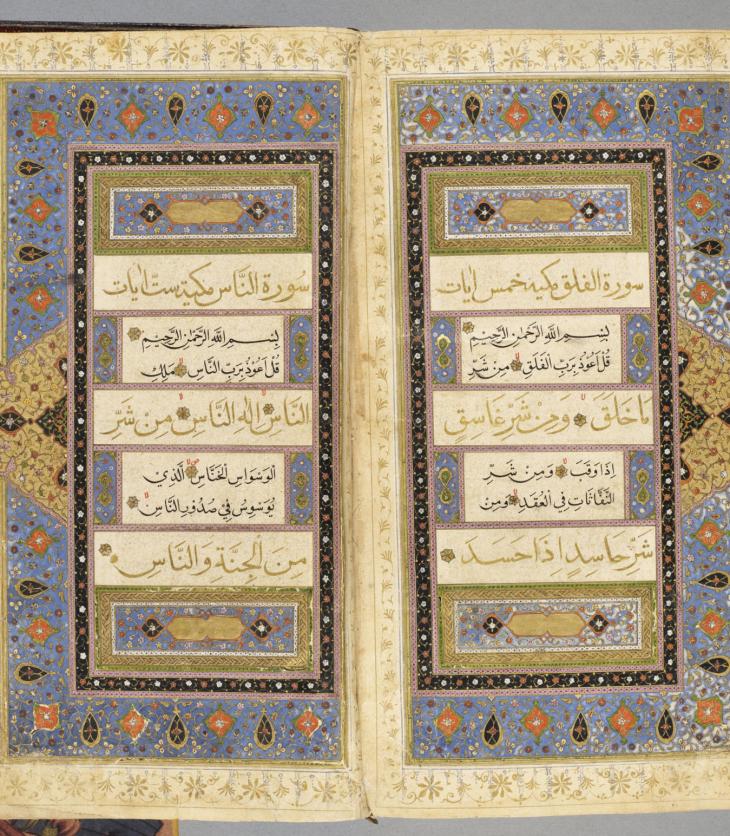 سورة الفلق مكية خمس ایات
بِسْمِ اللَّهِ الرَّحْمٰنِ الرَّحِيْمِ
قُلْ اَعُوْذُ بِرَبِّ الْفَلَقِ مِنْ شَرِّ
مَا خَلَقَ وَمِنْ شَرِّ غَاسِقٍ
اِذَا وَقَبَ وَمِنْ شَرِّ
النَّفَّاثَاتِ فِي الْعُقَدِ وَمِنْ
شَرِّ حَاسِدٍ اِذَا حَسَدَ
سورة الناس مكية ست ایات
بِسْمِ اللَّهِ الرَّحْمٰنِ الرَّحِيْمِ
قُلْ اَعُوْذُ بِرَبِّ النَّاسِ مَلِكِ
النَّاسِ اِلٰهِ النَّاسِ مِنْ شَرِّ
الْوَسْوَاسِ الْخَنَّاسِ الَّذِي
يُوَسْوِسُ فِي صُدُوْرِ النَّاسِ
مِنَ الْجِنَّةِ وَالنَّاسِ